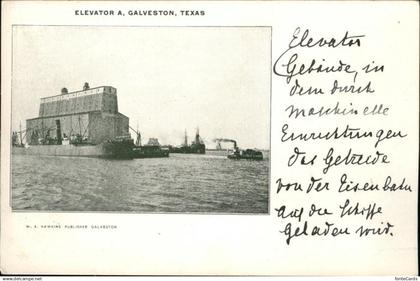 ELEVATOR A, GALVESTON, TEXAS
Elevator
Gebäude, in
dem durch
maschinelle
Einrichtungen
das Getreide
von der Eisenbahn
auf die Schiffe
geladen wird.
W. A. HAWKINS PUBLISHER GALVESTON
fenteCards